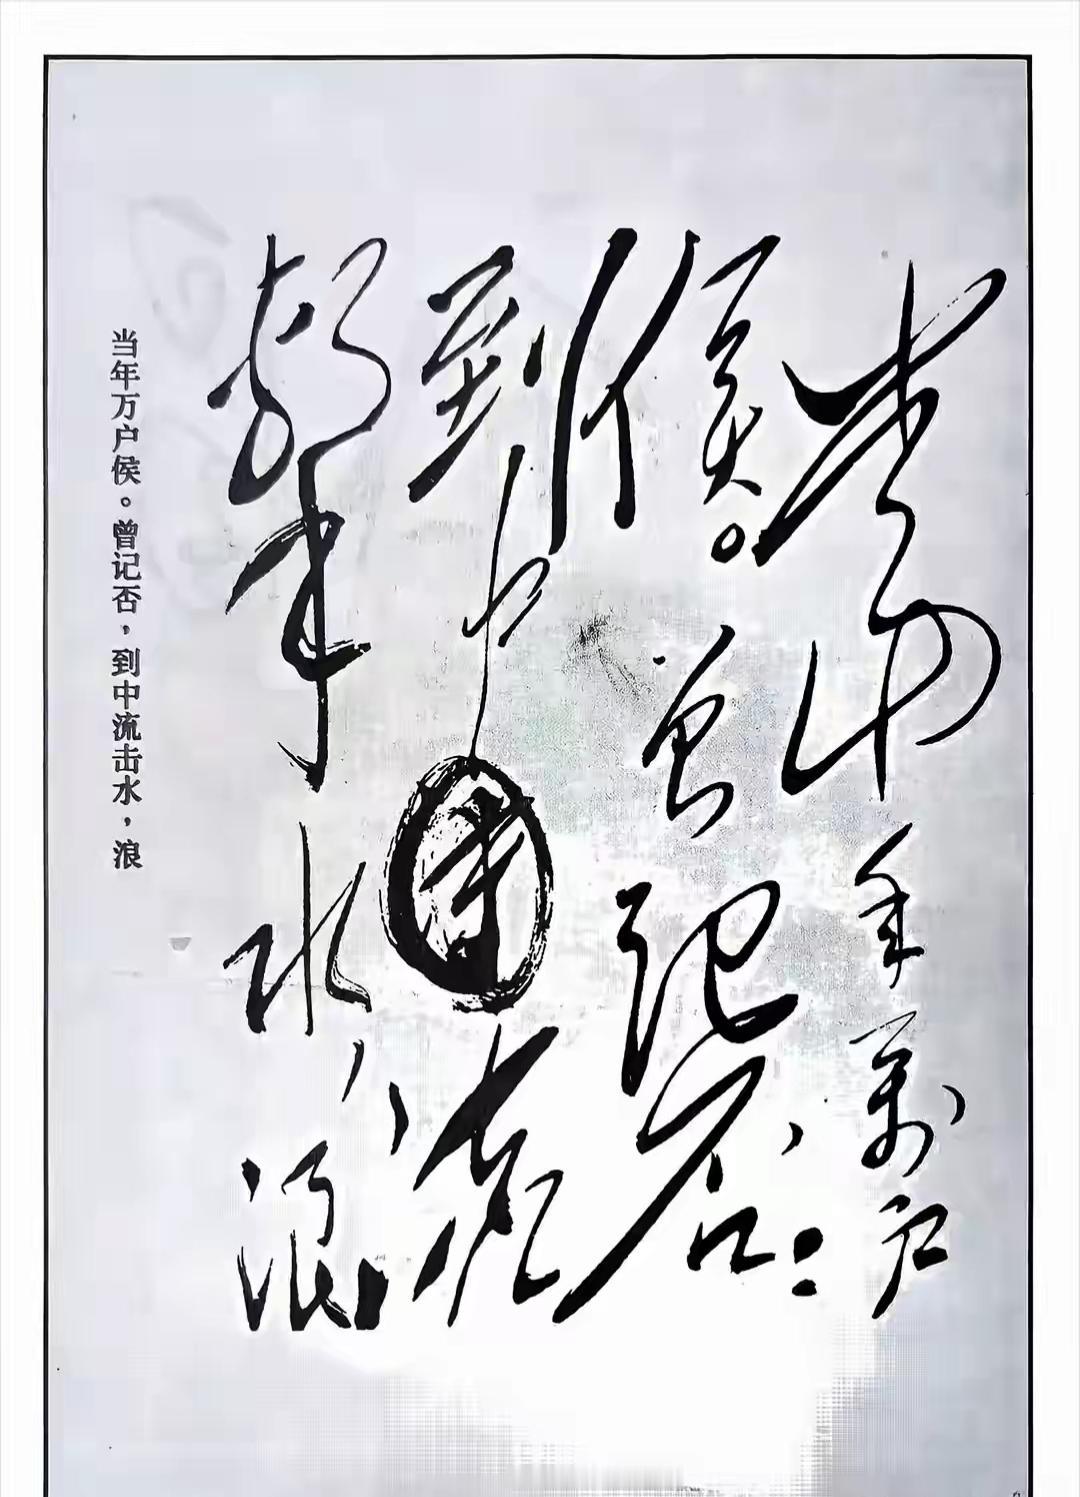 當年萬户
侯。曾记否:
到中流
擊水,浪
当年万户侯。曾记否,到中流击水,浪